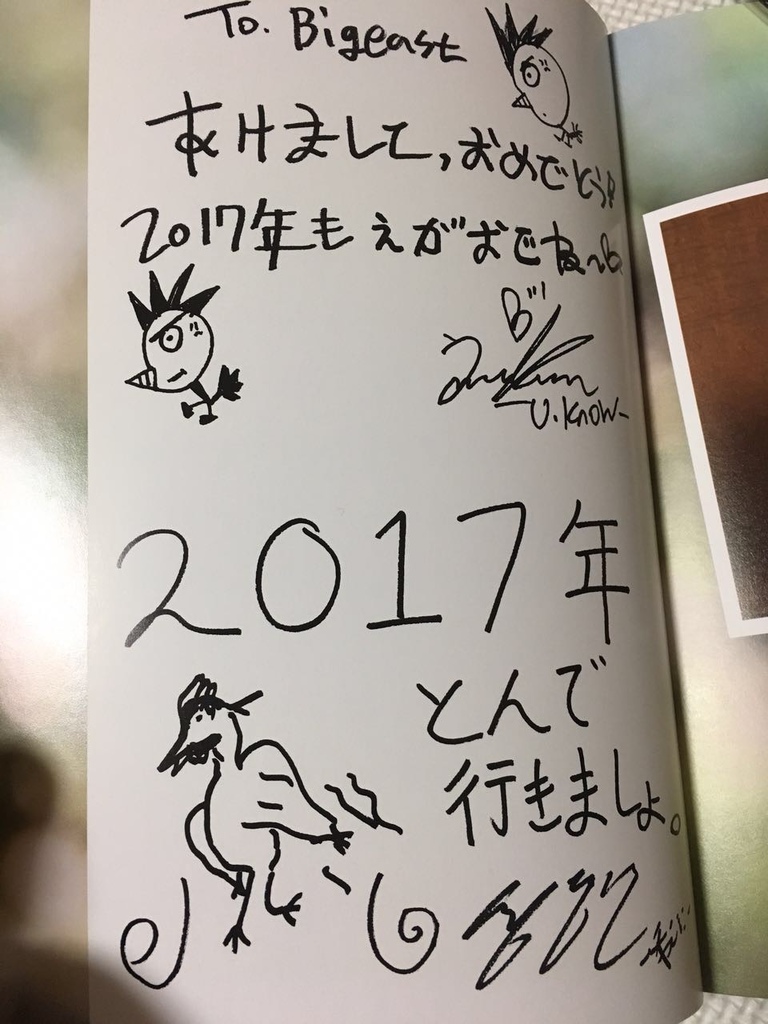 To. Bigeast
あけまして,おめでとう!
2017年も えがおでね〜
U.Know
2017年
とんで
行きましょ。